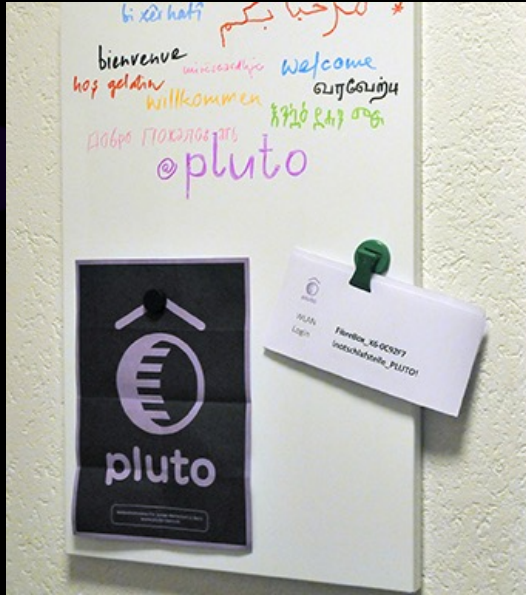 bi xêr hatî
مرحبا بكم
bienvenue
welcome
hoş geldin
வரவேற்பு
willkommen
እንኳዕ ደሓን መጻእ
Добро пожаловать
@pluto
pluto
pluto
WLAN
Login
FibreBox_X6-0C92F7
!notschlafstelle_PLUTO!